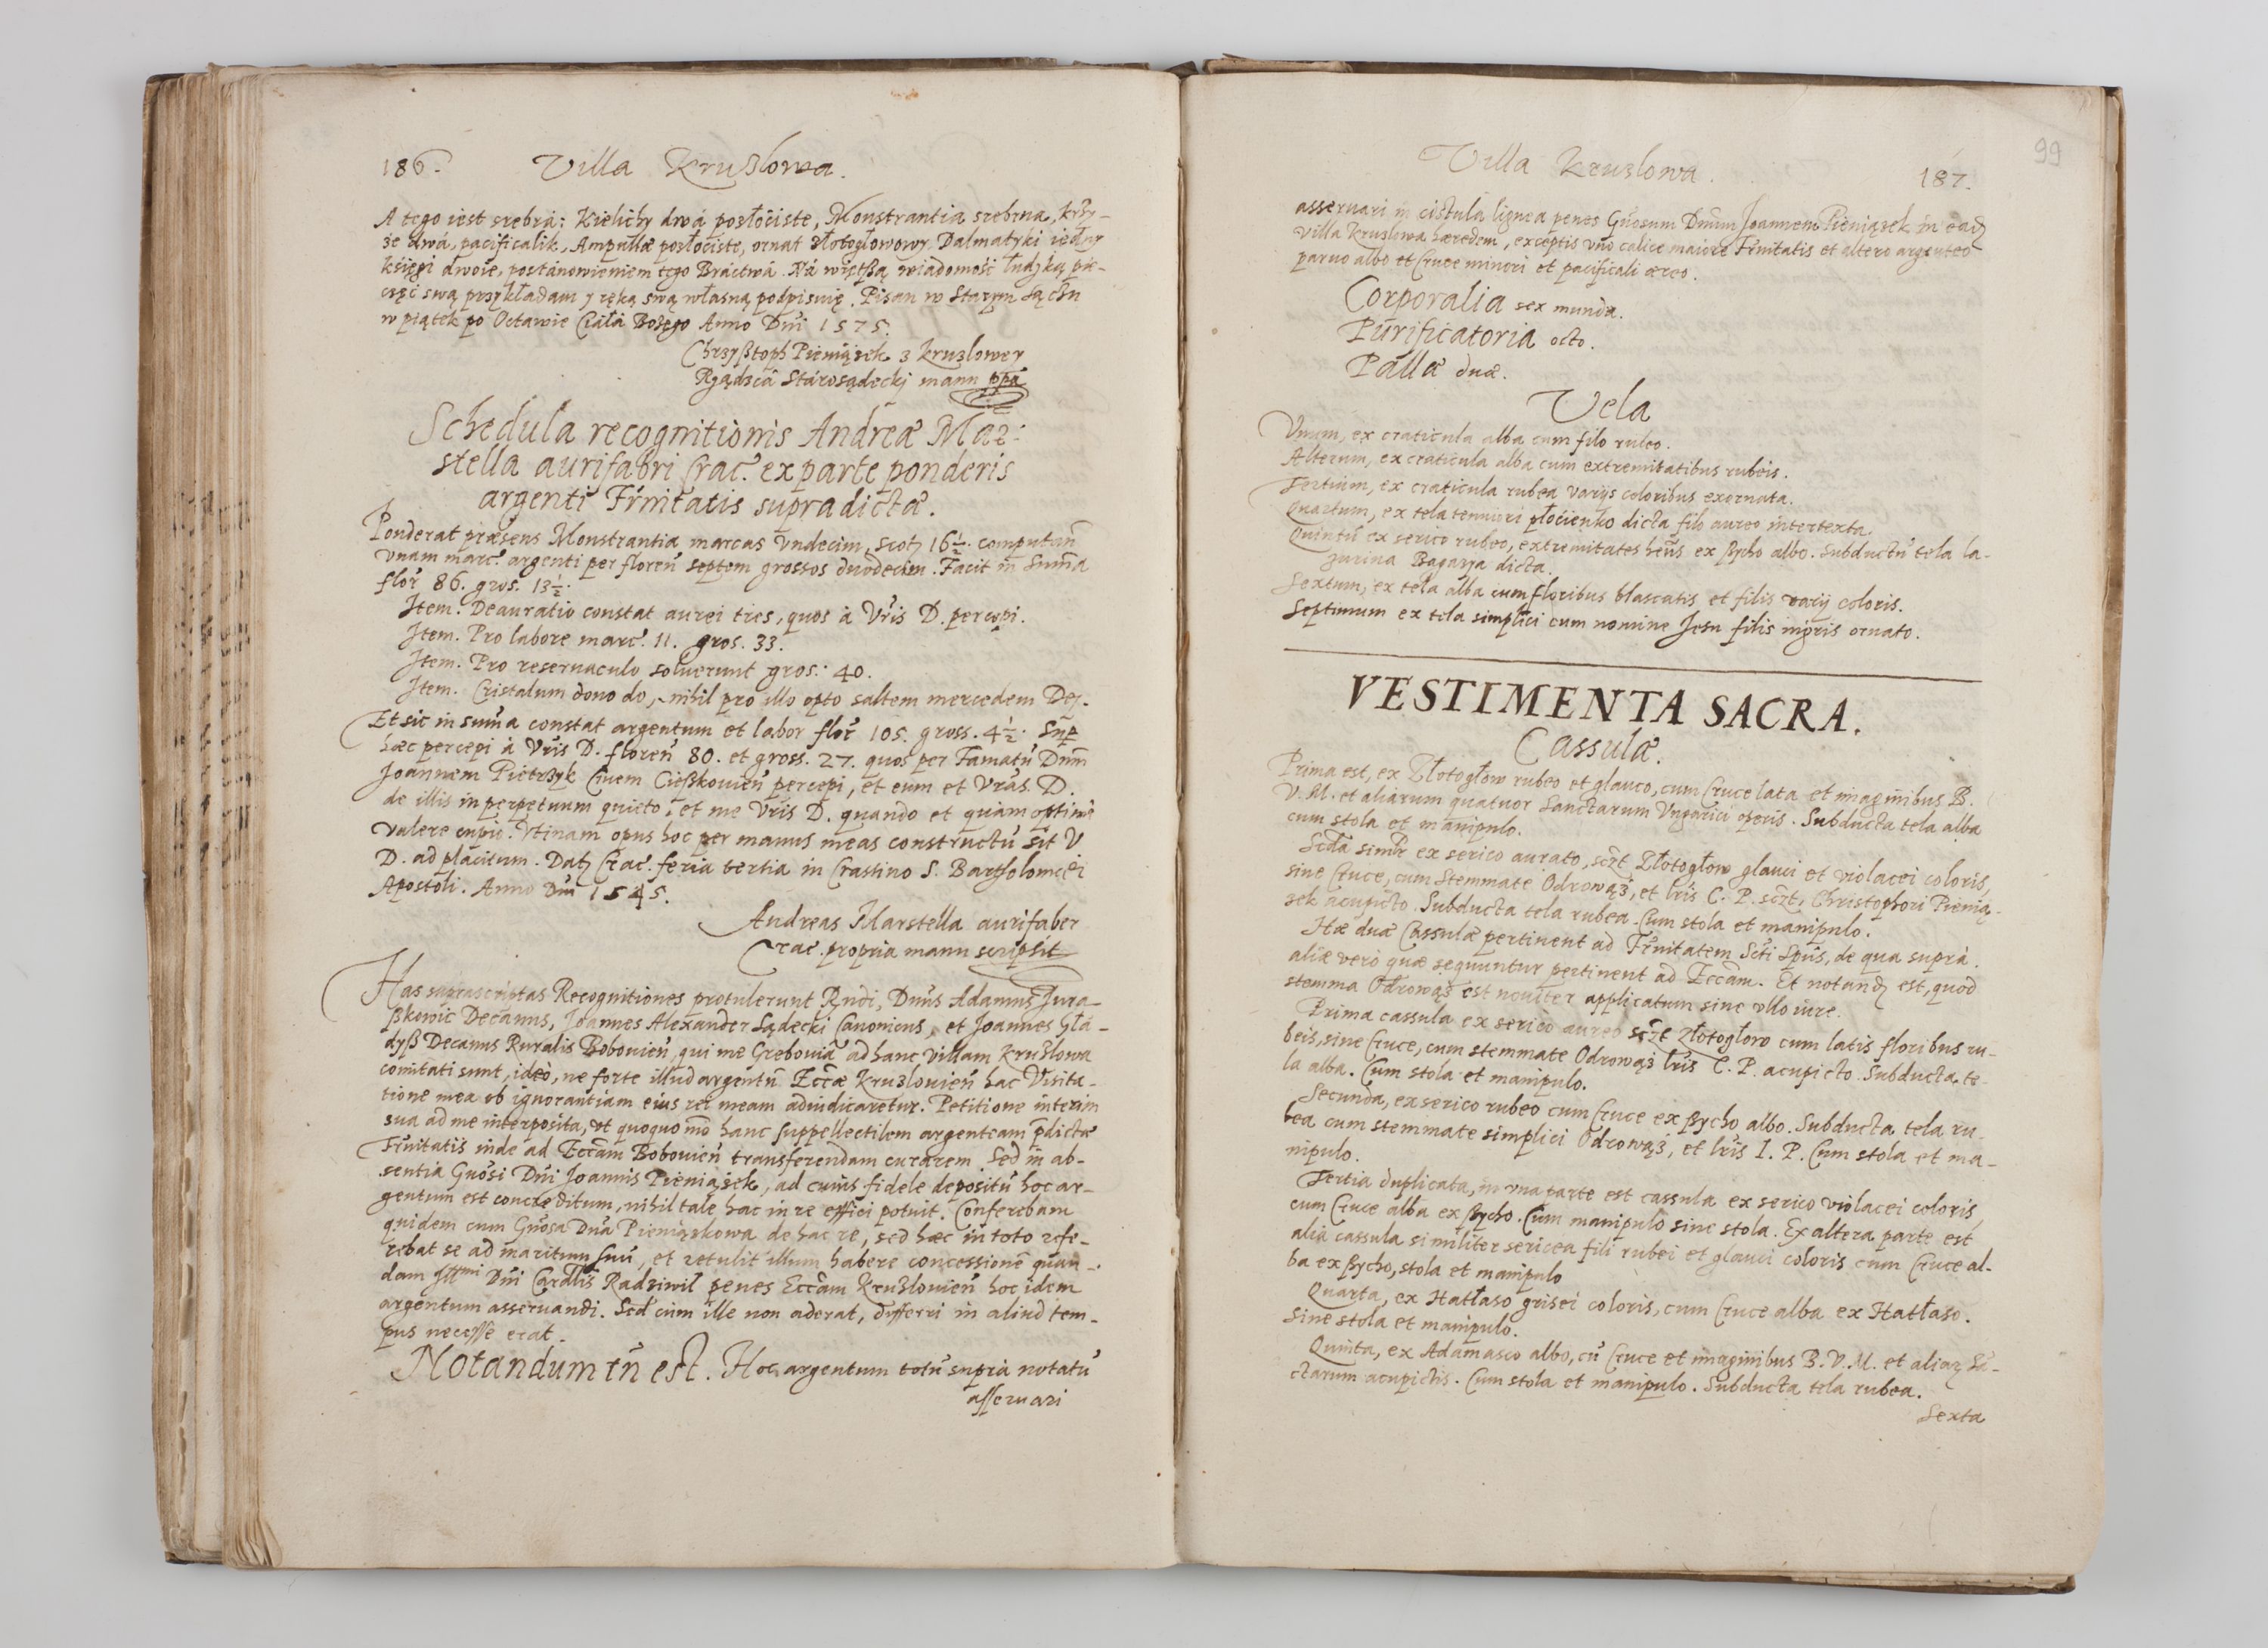 186. Villa Kruszlowa.
A tego iest srebra: Kielichy dwá pozłociste, Monstrantia srebrna, krzy-
że dwá, pacificalik, Ampułłæ pozłociste, ornat złotogłowowy, Dalmatyki iedny
księgi dwoie, postánowieniem tego Bráctwá. Ná więtßą wiádomość ludzką pie-
częć swą przykładam y ręką swą własną podpisuię. Pisan w Starym Sączu
w piątek po Octawie Ciáłá Bożego Anno Dni 1575.
Chrzyßtoph Pieniążek z Kruzlowey
Rządzcá Stárosądecki manu ppa
Schedula recognitionis Andreæ Mar:
stella aurifabri Crac. ex parte ponderis
argenti Frnitatis supradictæ.
Ponderat præsens Monstrantia marcas Vndecim, Scotz 16½. computan̄
vnam marc. argenti per floren̄ septem grossos duodecim. Facit in Sum̄a
flor 86. gros. 13½.
Item. Deauratio constat aurei tres, quos à Vris D. percepi.
Item. Pro labore marc. 11. gros. 33.
Item. Pro reseruaculo soluerunt gros: 40.
Item. Cristalum dono do, nihil pro illo opto saltem mercedem Dei.
Et sic in sum̄a constat argentum et labor flor 105. gross. 4½. Sup
hæc percepi à Vris D. floren̄ 80. et gross. 27. quos per Famatū Dnm
Joannem Pietrzyk Ciuem Cießkouien̄ percepi, et eum et Vras D.
de illis in perpetuum quieto, et me Vris D. quando et quàm optimè
valere cupio. Vtinam opus hoc per manus meas constructū sit V
D. ad placitum. Datz Crac. feria tertia in Crastino S. Bartholomęi
Apostoli. Anno Dni 1545.
Andreas Marstella aurifaber
Crac. propria manu scripsit
Has suprascriptas Recognitiones protulerunt Rndi, Dnus Adamus Jura-
ßkwoic Decanus, Joannes Alexander Sądecki Canonicus, et Joannes Głá-
dyß Decanus Ruralis Bobouien̄, qui me Grebouiā ad hanc villam Kruzlowa
comitati sunt, ideò, ne forte illud argentū Eccæ Kruzlouien̄ hac Visita-
tione mea ob ignorantiam eius rei meam adiudicaretur. Petitione interim
sua ad me interposita, vt quoquo mō hanc suppellectilem argenteam p̄dictæ
Frnitatis inde ad Eccām Bobouien̄ transferendam curarem. Sed in ab-
sentia Gnosi Dni Joannis Pieniążek, ad cuius fidele depositū hoc ar-
gentum est concreditum, nihil tale hac in re effici potuit. Conferebam
quidem cum Gnosa Dna Pieniążkowa de hac re, sed hæc in toto refe-
rebat se ad maritum suū, et retulit illum habere concessionē quan-
dam Illmi Dni Cardlis Radziwił penes Eccām Kruzlouien̄ hoc idem
argentum asseruandi. Sed cùm ille non aderat, differri in aliud tem-
pus necesse erat.
Notandum tn̄ est. Hoc argentum totū suprà notatū
asseruari
99
Villa Kruzlowa. 187.
asseruari in cistula lignea penes Gnosum Dnum Joannem Pieniążek in eadz
villa Kruzlowa hæredem, exceptis vno calice maiore Frnitatis et altero argenteo
paruo albo et Cruce minori et pacificali æreo.
Corporalia sex munda.
Purificatoria octo.
Pallæ duæ.
Vela
Vnum, ex craticula alba cum filo rubeo.
Alterum, ex craticula alba cum extremitatibus rubeis.
Tertium, ex craticula rubea varijs coloribus exornata.
Quartum, ex tela tenuiori płócienko dicta filo aureo intertexta.
Quintū ex serico rubeo, extremitates hens ex ßycho albo. Subductū tela la-
zurina Bagazya dicta.
Sextum, ex tela alba cum floribus blascatis et filis varij coloris.
Septimum ex tela simplici cum nomine Jesu filis nigris ornato.
VESTIMENTA SACRA.
Cassulæ.
Prima est, ex Złotogłow rubeo et glauco, cum Cruce lata et imaginibus B.
V. M. et aliarum quatuor Sanctarum Vngarici operis. Subducta tela alba
cum stola et manipulo.
Scda simlr ex serico aurato, sczt Złotogłow glauci et violacei coloris,
sine Cruce, cum Stemmate Odrowąż, et lris C. P. sczt, Christophori Pienią-
żek acupicto. Subducta tela rubea. Cum stola et manipulo.
Hæ duæ Cassulæ pertinent ad Frnitatem Scti Spūs, de qua suprà.
aliæ verò quæ sequuntur pertinent ad Eccām. Et notandz est, quòd
stemma Odrowąż est nouiter applicatum sine vllo iure.
Prima cassula ex serico aureo sczt Złotogłow cum latis floribus ru-
beis, sine Cruce, cum stemmate Odrowąż lris C. P. acupicto. Subducta te-
la alba. Cum stola et manipulo.
Secunda, ex serico rubeo cum Cruce ex ßycho albo. Subducta tela ru-
bea cum stemmate simplici Odrowąż, et lris I. P. Cum stola et ma-
nipulo.
Tertia duplicata, in vna parte est cassula ex serico violacei coloris,
cum Cruce alba ex ßycho. Cum manipulo sine stola. Ex altera parte est
alia cassula similiter sericea fili rubei et glauci coloris cum Cruce al-
ba ex ßycho, stola et manipulo
Quarta, ex Hatłaso grisei coloris, cum Cruce alba ex Hatłaso.
Sine stola et manipulo.
Quinta, ex Adamasco albo, cū Cruce et imaginibus B. V. M. et aliarz Sā-
ctarum acupictis. Cum stola et manipulo. Subducta tela rubea.
Sexta